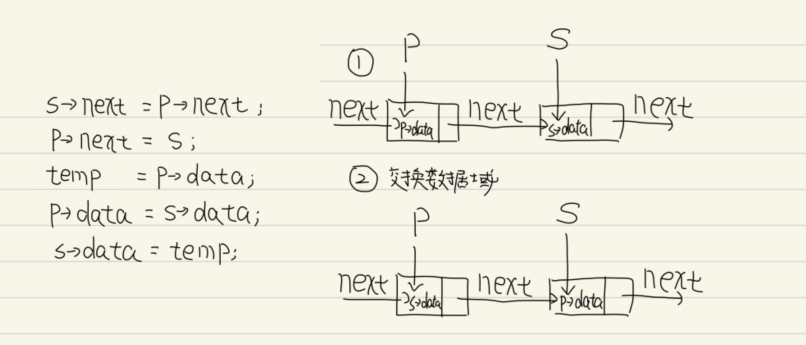 S→next = P→next;
P→next = S;
temp = P→data;
P→data = S→data;
S→data = temp;
①
P
S
next
P→data
next
S→data
next
② 交换数据域
P
S
next
S→data
next
P→data
next